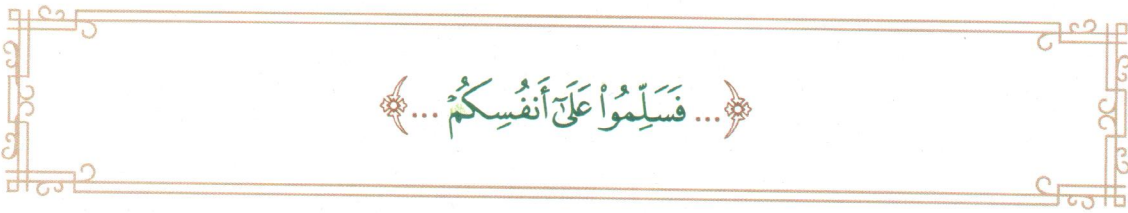 ﴿... فَسَلِّمُوا۟ عَلَىٰٓ أَنفُسِكُمْ ...﴾